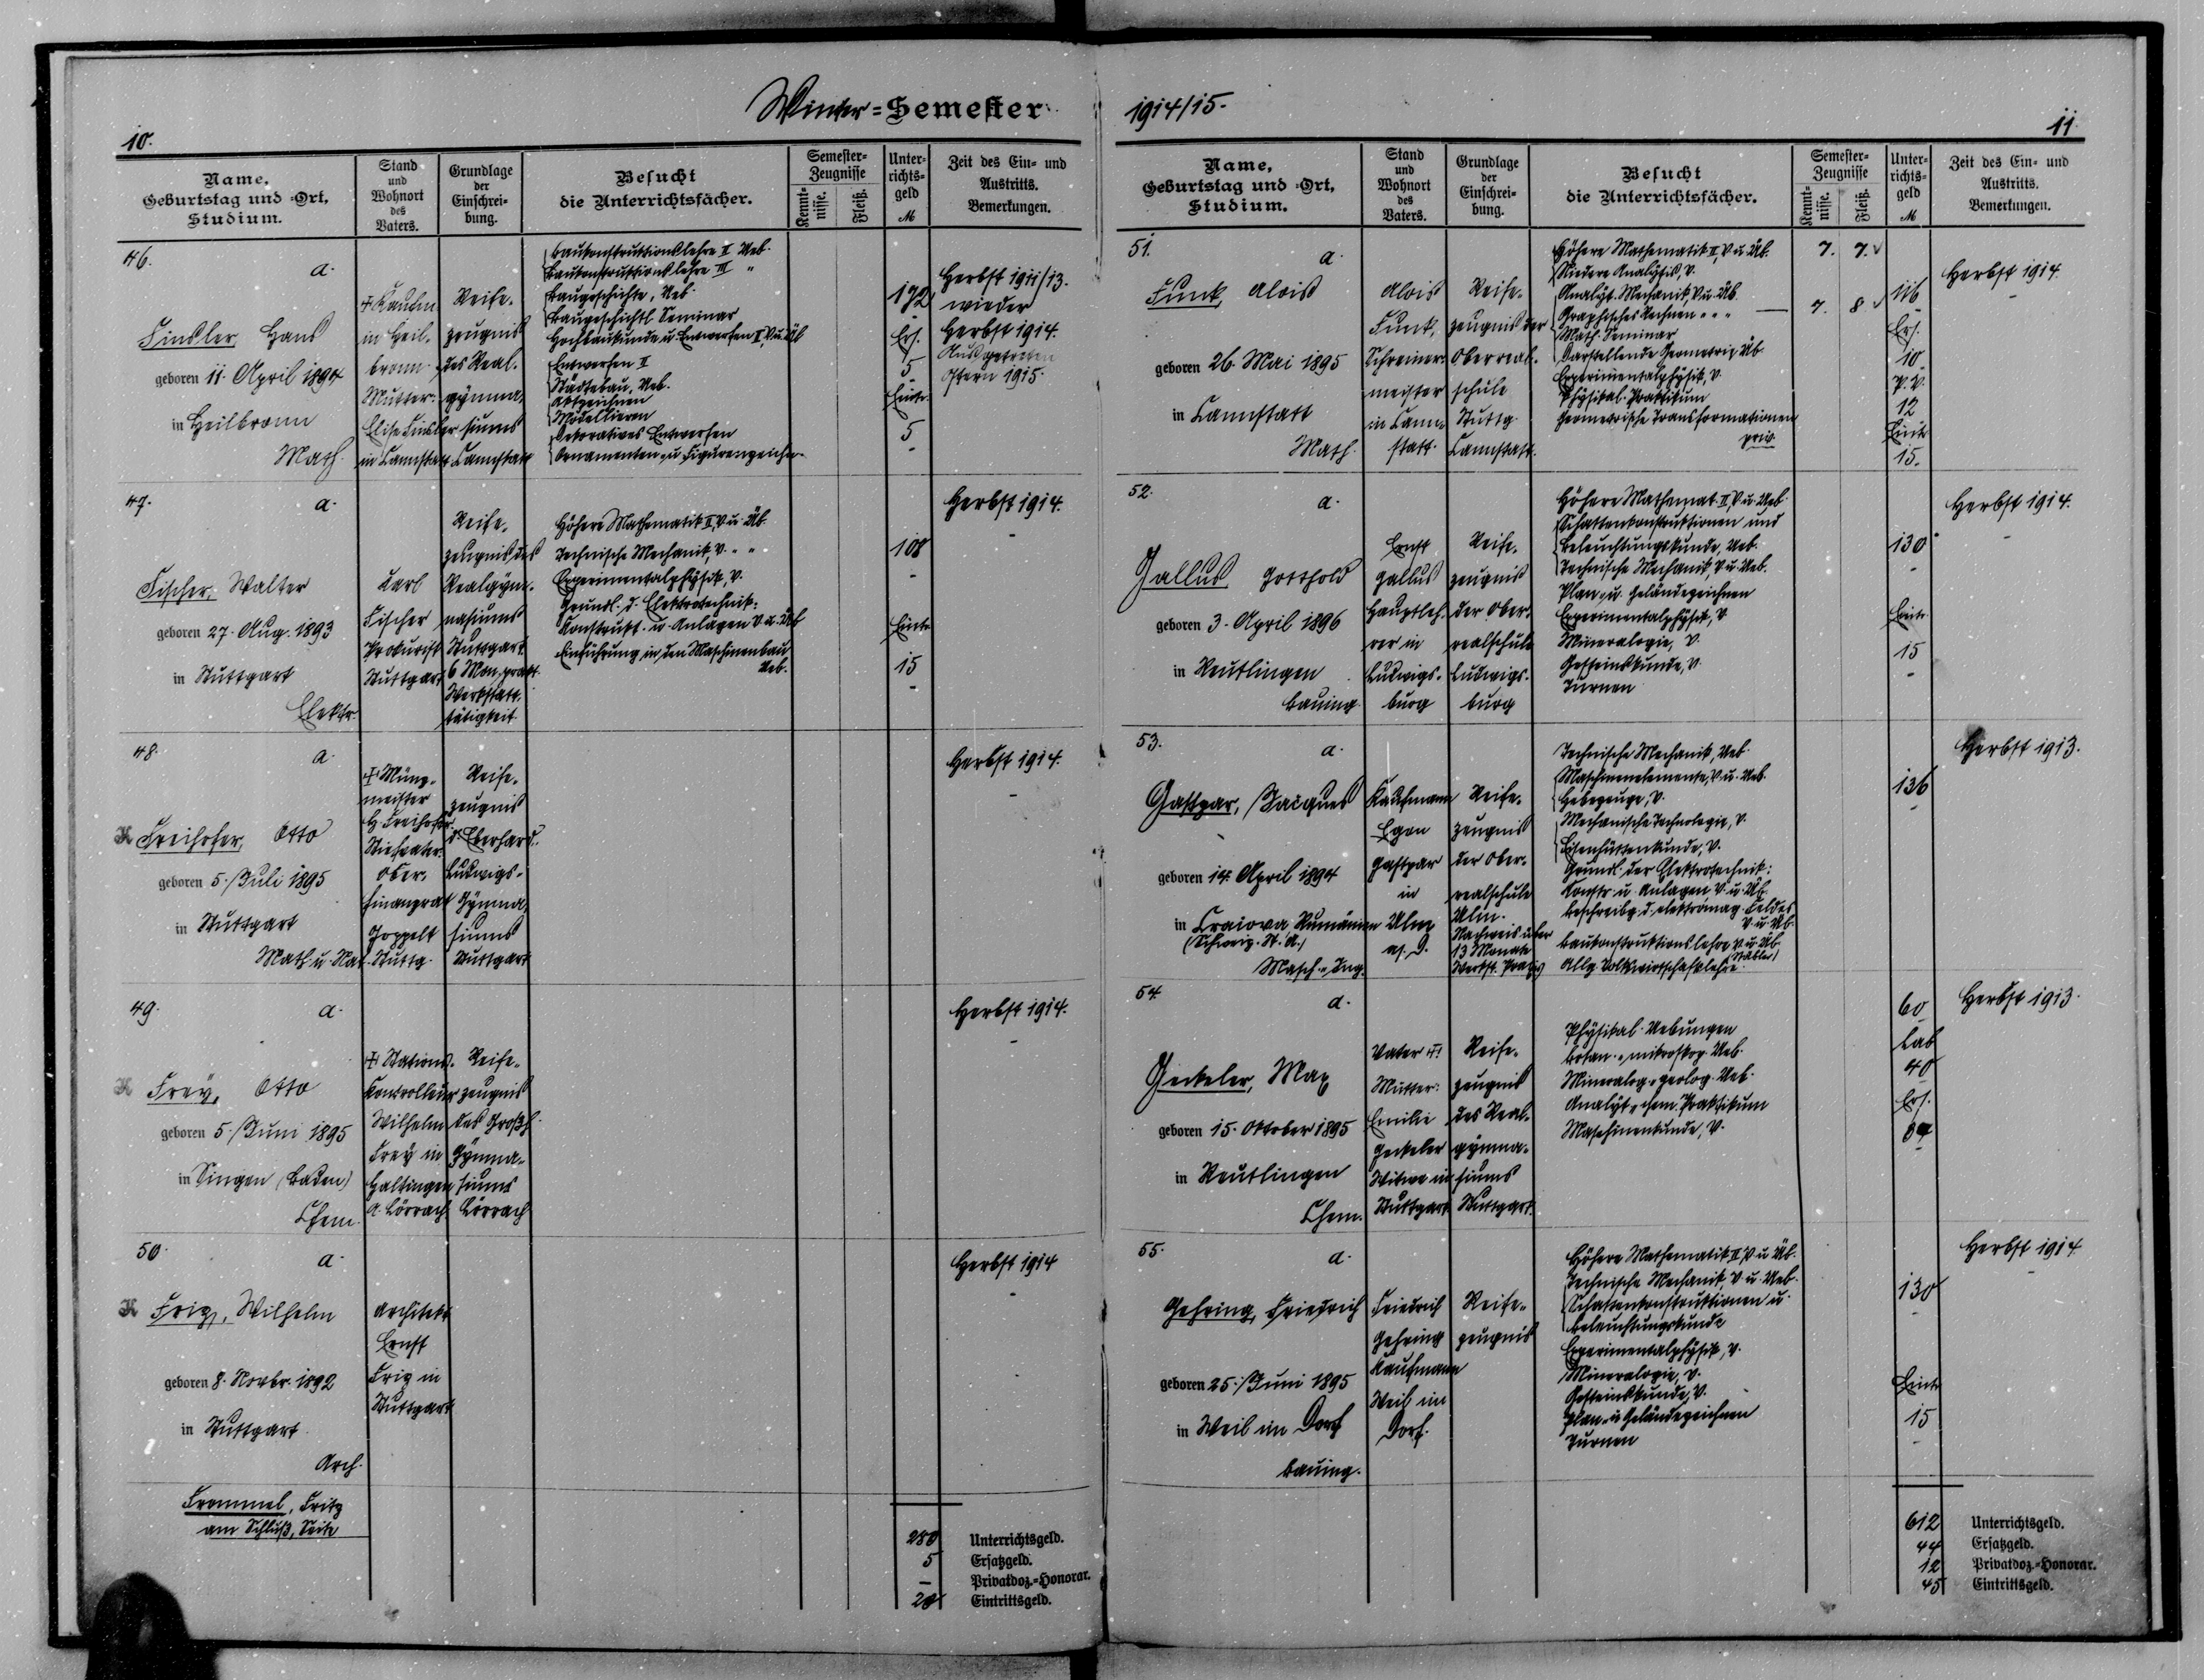 Winter=Semester 1914/15.
10.
Name, Geburtstag und =Ort, Studium.
Stand und Wohnort des Vaters.
Grundlage der Einschrei=bung.
Besucht die Unterrichtsfächer.
Semester=Zeugnisse
Kennt=nisse.
Fleiß.
Unter=richts=geld M
Zeit des Ein= und Austritts. Bemerkungen.
46.
a.
Finsler, Hans
geboren 11. April 1894
in Heilbronn
Math.
† Kaufm.
in Heil-
bronn
Mutter:
Elise Finsler
in Cannstatt
Reife-
zeugnis
des Real-
gymna-
siums
Cannstatt
Baukonstruktionslehre II Ueb.
Baukonstruktionslehre III "
Baugeschichte, Ueb.
Baugeschichtl. Seminar
Hochbaukunde u. Entwerfen II, V. u. Üb
Entwerfen II
Städtebau, Ueb.
Aktzeichnen
Modellieren
Dekoratives Entwerfen
Ornamenten- u. Figurenzeichn.
172
Ers.
5
Eintr.
5
Herbst 1911/13.
wieder
Herbst 1914.
Ausgetreten
Ostern 1915.
47.
a.
Fischer, Walter
geboren 27. Aug. 1893
in Stuttgart
Elektr.
Carl
Fischer
Prokurist
Stuttgart
Reife-
zeugnis des
Realgym-
nasiums
Stuttgart.
6 Mon. prakt.
Werkstatt-
tätigkeit
Höhere Mathematik II, V. u. Üb.
Technische Mechanik, V. " "
Experimentalphysik, V.
Grundl. d. Elektrotechnik:
Konstrukt. u. Anlagen V. u. Üb
Einführung in den Maschinenbau
Ueb.
108
Eintr.
15
Herbst 1914.
48.
a.
Freihofer, Otto
geboren 5. Juli 1895
in Stuttgart
Math. u. Nat.
† Münz-
meister
H. Freihofer
Stiefvater:
Ober-
finanzrat
Goppelt
Stuttg.
Reife-
zeugnis
d. Eberhard-
Ludwigs-
Gymna-
siums
Stuttgart
Herbst 1914.
49.
a.
Frey, Otto
geboren 5. Juni 1895
in Singen (Baden)
Chem.
† Stations-
Kontrolleur
Wilhelm
Frey in
Haltingen
A. Lörrach
Reife-
zeugnis
des Großh.
Gymna-
siums
Lörrach
Herbst 1914.
50.
a.
Friz, Wilhelm
geboren 8. Novbr. 1892
in Stuttgart
Arch.
Architekt
Ernst
Friz in
Stuttgart
Herbst 1914
Frommel, Fritz
am Schluß, Seite
280 Unterrichtsgeld.
5 Ersatzgeld.
– Privatdoz.=Honorar.
20 Eintrittsgeld.
11.
Name, Geburtstag und =Ort, Studium.
Stand und Wohnort des Vaters.
Grundlage der Einschrei=bung.
Besucht die Unterrichtsfächer.
Semester=Zeugnisse
Kennt=nisse.
Fleiß.
Unter=richts=geld M
Zeit des Ein= und Austritts. Bemerkungen.
51.
a.
Funk, Alois
geboren 26. Mai 1895
in Cannstatt
Math.
Alois
Funk,
Schreiner-
meister
in Cann-
statt.
Reife-
zeugnis der
Oberreal-
schule
Stuttg.
Cannstatt.
Höhere Mathematik II, V. u. Üb.
Niedere Analysis, V.
Analyt. Mechanik, V. u. Üb.
Graphisches Rechnen " " "
Math. Seminar
Darstellende Geometrie Üb.
Experimentalphysik, V.
Physikal. Praktikum
Geometrische Transformationen
priv.
7. 7.
7. 8
116
Ers.
10
P. V.
12
Eintr.
15.
Herbst 1914.
52.
a.
Gallus Gotthold
geboren 3. April 1896
in Reutlingen
Bauing.
Ernst
Gallus
Hauptleh-
rer in
Ludwigs-
burg
Reife-
zeugnis
der Ober-
realschule
Ludwigs-
burg
Höhere Mathemat. II, V. u. Ueb.
Schattenkonstruktionen und
Beleuchtungskunde, Ueb.
Technische Mechanik, V. u. Ueb.
Plan- u. Geländezeichnen
Experimentalphysik, V.
Mineralogie, V.
Gesteinskunde, V.
Turnen
130
Eintr.
15
Herbst 1914.
53.
a.
Gastpar, Jacques
geboren 14. April 1894
in Craiova Rumänien
(Schweiz. St. A.)
Masch.-Ing.
Kaufmann
Egon
Gastpar
in
Ulm
a. D.
Reife-
zeugnis
der Ober-
realschule
Ulm.
Nachweis über
13 Monate
Werkst. Praxis
Technische Mechanik, Ueb.
Maschinenelemente, V. u. Ueb.
Hebezeuge, V.
Mechanische Technologie, V.
Eisenhüttenkunde, V.
Grundl. der Elektrotechnik:
Konstr. u. Anlagen V. u. Üb.
Beschreibg. d. elektromag. Feldes
V. u. Üb.
Baukonstruktionslehre V. u. Üb.
Allg. Volkswirtschaftslehre
136
Herbst 1913.
54.
a.
Geckeler, Max
geboren 15. Oktober 1895
in Reutlingen
Chem.
Vater †.
Mutter:
Emilie
Geckeler
Witwe in
Stuttgart
Reife-
zeugnis
des Real-
gymna-
siums
Stuttgart.
Physikal. Uebungen
Botan.-mikroskop. Ueb.
Mineralog.-geolog. Ueb.
Analyt.-chem. Praktikum
Maschinenkunde, V.
60
Lab
40
Ers.
Herbst 1913.
55.
a.
Gehring, Friedrich
geboren 25. Juni 1895
in Weil im Dorf
Bauing.
Friedrich
Gehring
Kaufmann
Weil im
Dorf.
Reife-
zeugnis
Höhere Mathematik II, V. u. Üb.
Technische Mechanik V. u. Ueb.
Schattenkonstruktionen u.
Beleuchtungskunde
Experimentalphysik, V.
Mineralogie, V.
Gesteinskunde, V.
Plan- u. Geländezeichnen
Turnen
130
Eintr.
15
Herbst 1914.
612 Unterrichtsgeld.
44 Ersatzgeld.
12 Privatdoz.=Honorar.
45 Eintrittsgeld.